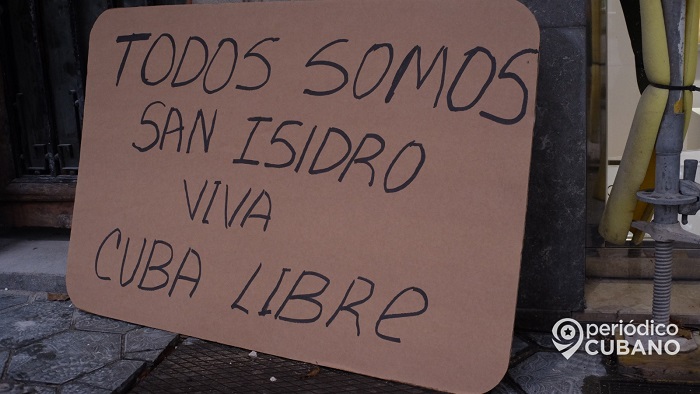 TODOS SOMOS
SAN ISIDRO
VIVA
CUBA LIBRe
periódico
CUBANO